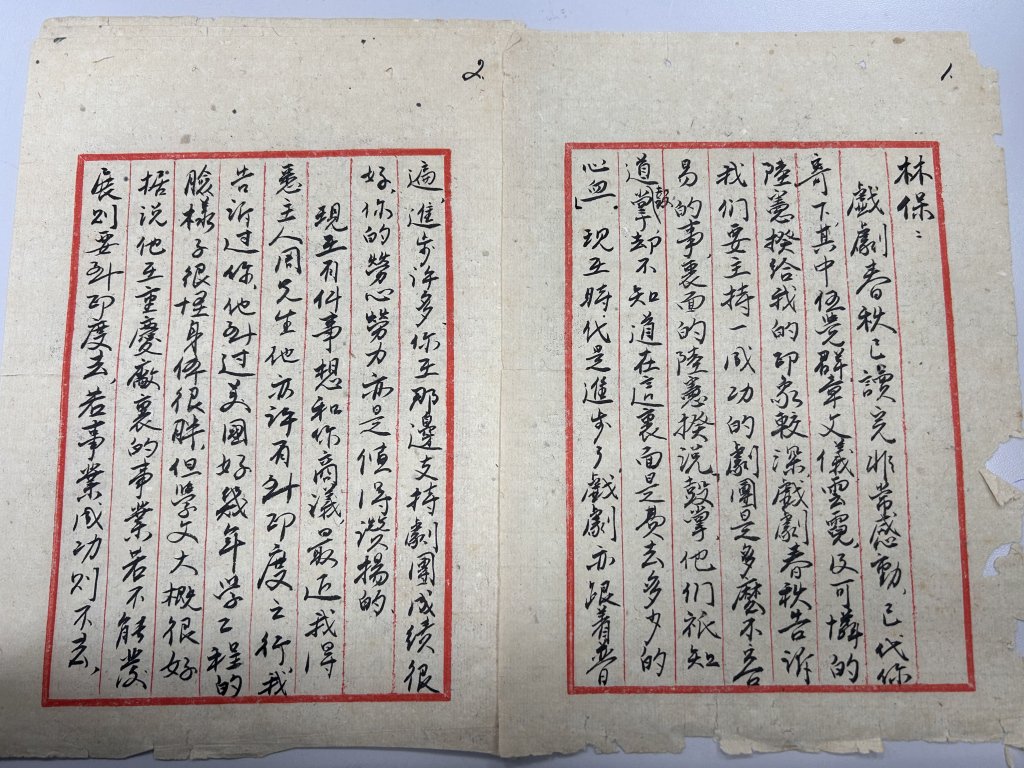 1.
林保：
戲劇春秋已讀完非常感動，已代你
寄下其中伍覺群章文儀雲霓，及可憐的
陸憲揆給我的印象較深戲劇春秋告訴
我们要主持一成功的劇團是多麼不容
易的事，裏面的陸憲揆説「鼓掌，他们祇知
道鼓掌却不知道在這裏面是費去多少的
心血」，現在時代是進步了，戲劇亦跟着普
2.
遍，進步許多，你在那邊支持劇團成績很
好，你的勞心勞力亦是值得讚揚的
現在有件事想和你商議，最近我得
悉主人周先生他亦许有到印度之行，我
告訴过你，他到过美國好幾年学工程的
臉樣子很怪身体很胖，但學文大概很好
据说他在重慶敵裏的事業若不能發
展则要到印度去，若事業成功则不去，